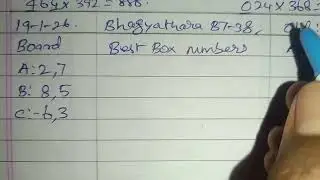 464 × 392 = 888. 024 × 368 =
19-1-26. Bhagyathara BT-38,
Board Best Box numbers
A: 2,7
B: 8,5
C:-6,3